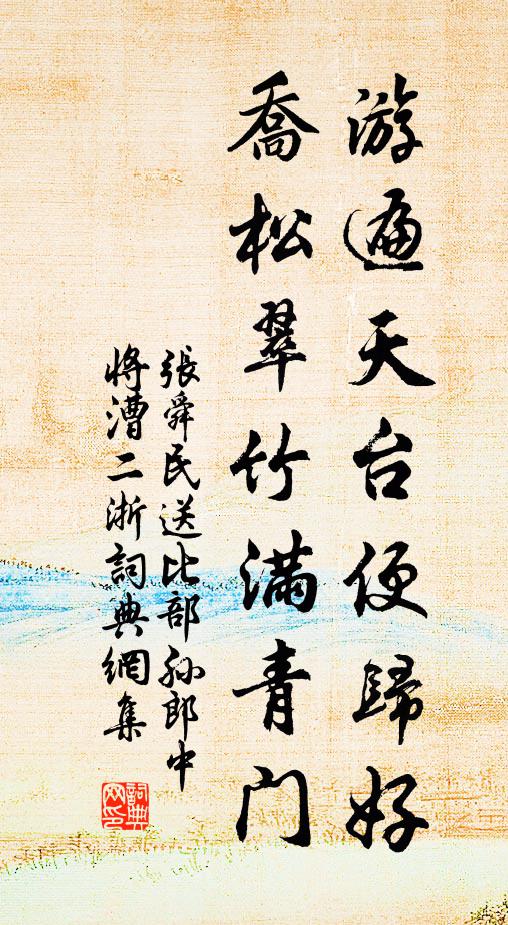 游遍天台便歸好
喬松翠竹滿青門
張舜民送比部孙郎中
將漕二浙詞典網集
詞典网印